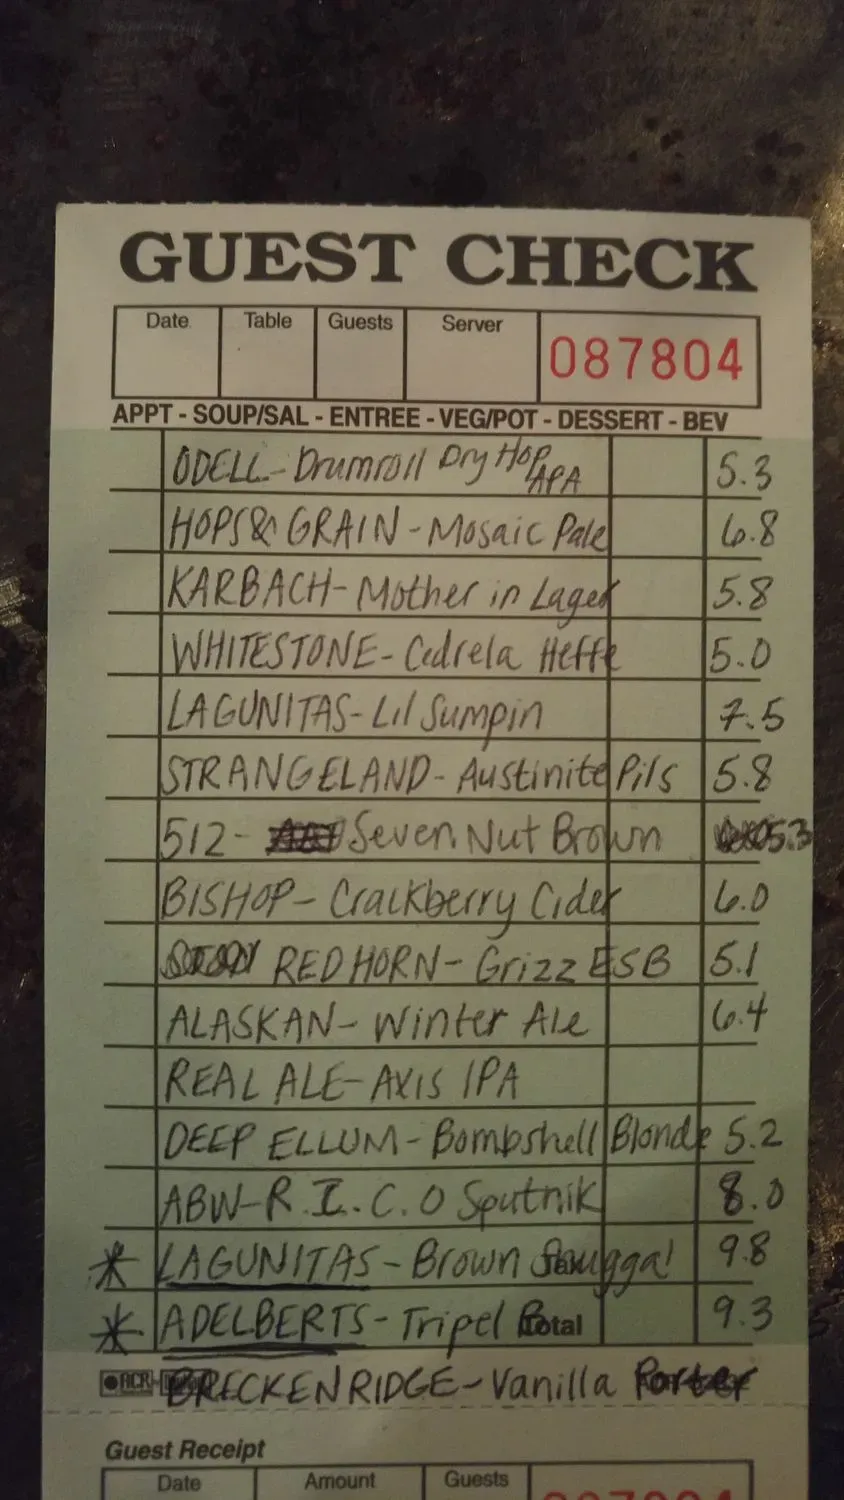 GUEST CHECK
Date Table Guests Server 087804
APPT - SOUP/SAL - ENTREE - VEG/POT - DESSERT - BEV
ODELL - Drumroll Dry Hop APA 5.3
HOPS & GRAIN - Mosaic Pale 6.8
KARBACH - Mother in Lager 5.8
WHITESTONE - Cedrela Heffe 5.0
LAGUNITAS - Lil Sumpin 7.5
STRANGELAND - Austinite Pils 5.8
512 - Seven Nut Brown 5.3
BISHOP - Crackberry Cider 6.0
RED HORN - Grizz ESB 5.1
ALASKAN - Winter Ale 6.4
REAL ALE - AXIS IPA
DEEP ELLUM - Bombshell Blonde 5.2
ABW - R.I.C.O Sputnik 8.0
* LAGUNITAS - Brown Shugga! 9.8
* ADELBERTS - Tripel B Total 9.3
BRECKENRIDGE - Vanilla Porter
Guest Receipt
Date Amount Guests 087804